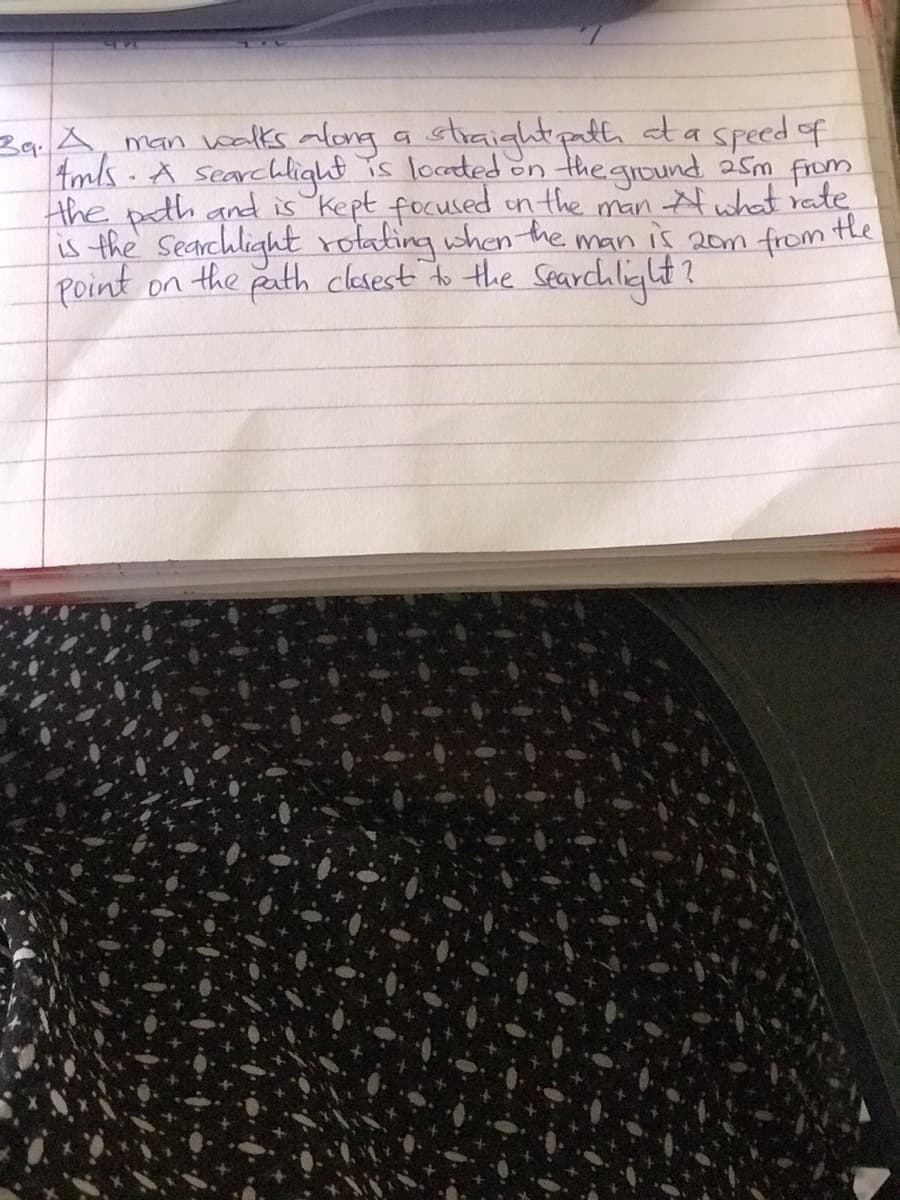 3q. A man walks along a straight path at a speed of
4m/s. A searchlight is located on the ground 25m from
the path and is kept focused on the man At what rate
is the searchlight rotating when the man is 20m from the
point on the path closest to the searchlight?